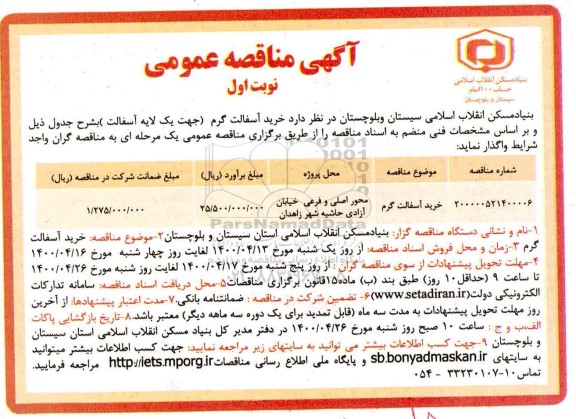 آگهی مناقصه عمومی
نوبت اول
بنیاد مسکن انقلاب اسلامی
حساب ۱۰۰ امام
سیستان و بلوچستان
بنیادمسکن انقلاب اسلامی سیستان وبلوچستان در نظر دارد خرید آسفالت گرم (جهت یک لایه آسفالت )بشرح جدول ذیل
و بر اساس مشخصات فنی منضم به اسناد مناقصه را از طریق برگزاری مناقصه عمومی یک مرحله ای به مناقصه گران واجد
شرایط واگذار نماید:
شماره مناقصه موضوع مناقصه محل پروژه مبلغ برآورد (ریال) مبلغ ضمانت شرکت در مناقصه (ریال)
۲۰۰۰۰۰۵۲۱۴۰۰۰۰۶ خرید آسفالت گرم محور اصلی و فرعی خیابان آزادی حاشیه شهر زاهدان ۲۵/۵۰۰/۰۰۰/۰۰۰ ۱/۲۷۵/۰۰۰/۰۰۰
۱-نام و نشانی دستگاه مناقصه گزار: بنیادمسکن انقلاب اسلامی استان سیستان و بلوچستان۲-موضوع مناقصه: خرید آسفالت
گرم ۳-زمان و محل فروش اسناد مناقصه: از روز یک شنبه مورخ ۱۴۰۰/۰۴/۱۳ لغایت روز چهار شنبه مورخ ۱۴۰۰/۰۴/۱۶
۴-مهلت تحویل پیشنهادات از سوی مناقصه گران : از روز پنج شنبه مورخ ۱۴۰۰/۰۴/۱۷ لغایت روز شنبه مورخ ۱۴۰۰/۰۴/۲۶
تا ساعت ۹ (حداقل۱۰ روز) طبق بند (ب) ماده۱۵قانون برگزاری مناقصات۵-محل دریافت اسناد مناقصه: سامانه تدارکات
الکترونیکی دولت(www.setadiran.ir)۶- تضمین شرکت در مناقصه : ضمانتنامه بانکی.۷-مدت اعتبار پیشنهادها: از آخرین
روز مهلت تحویل پیشنهادات به مدت سه ماه (قابل تمدید برای یک دوره سه ماهه دیگر) معتبر باشد.۸-تاریخ بازگشایی پاکات
الف،ب و ج : ساعت ۱۰ صبح روز شنبه مورخ ۱۴۰۰/۰۴/۲۶ در دفتر مدیر کل بنیاد مسکن انقلاب اسلامی استان سیستان
و بلوچستان ۹-جهت کسب اطلاعات بیشتر می توانید به سایتهای زیر مراجعه نمایید: جهت کسب اطلاعات بیشتر میتوانید
به سایتهای sb.bonyadmaskan.ir و پایگاه ملی اطلاع رسانی مناقصات http://iets.mporg.ir مراجعه فرمایید.
تماس۱۰-۳۳۲۳۰۱۰۷ - ۰۵۴